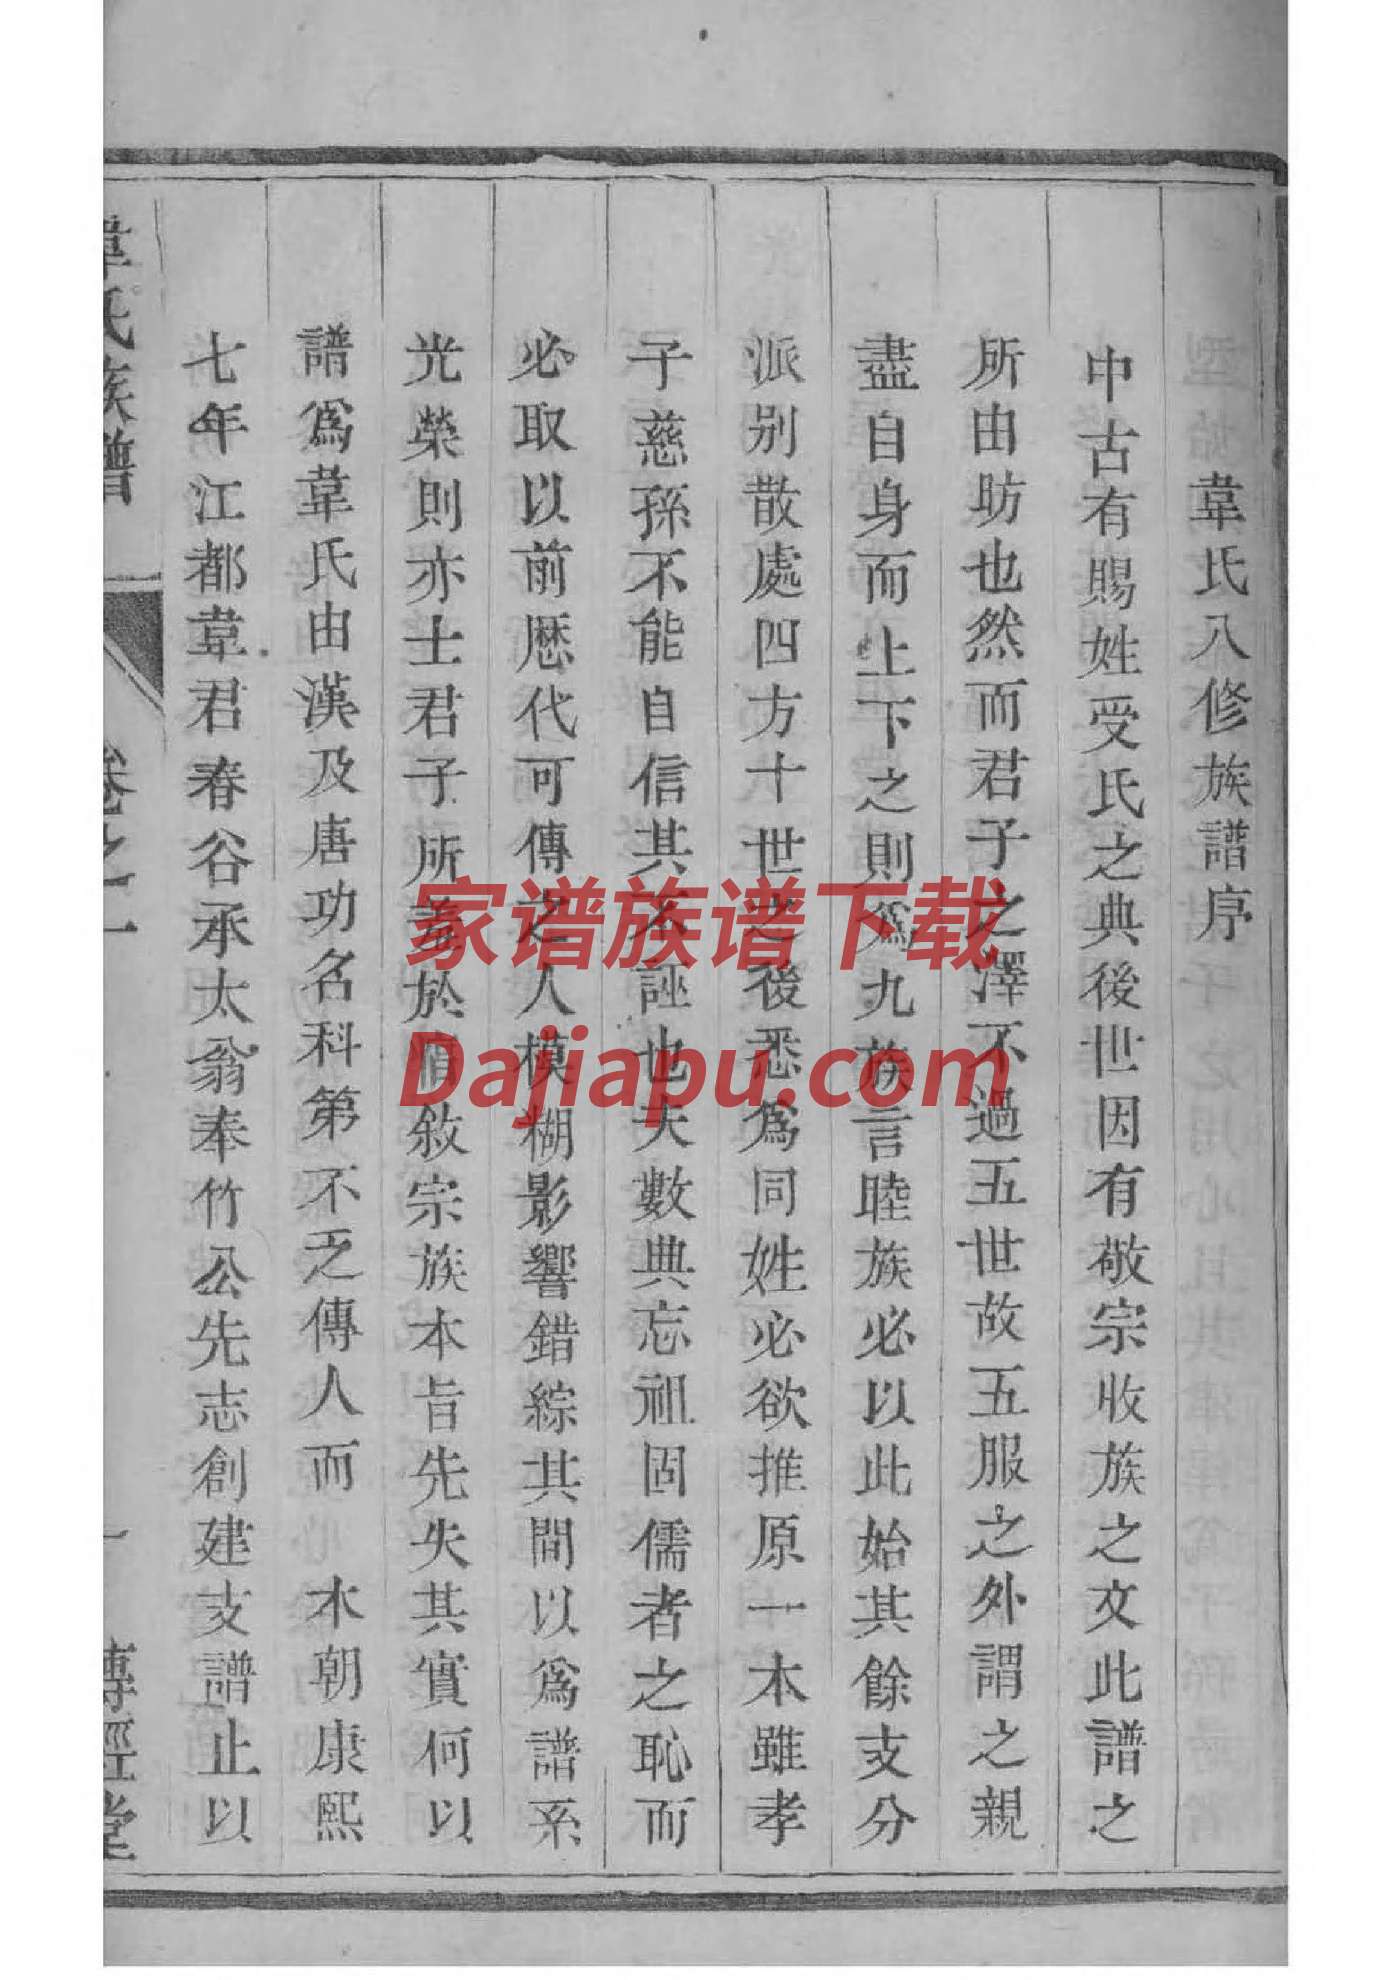 韋氏八修族譜序
中古有賜姓受氏之典後世因有敬宗收族之文此譜之
所由昉也然而君子之澤不過五世故五服之外謂之親
盡自身而上下之則爲九族言睦族必以此始其餘支分
派别散處四方十世之後悉爲同姓必欲推原一本雖孝
子慈孫不能自信其不誣也夫數典忘祖固儒者之恥而
必取以前歷代可傳之人模糊影響錯綜其間以爲譜系
光榮則亦士君子所羞於惇敘宗族本旨先失其實何以
譜爲韋氏由漢及唐功名科第不乏傳人而 本朝康熙
七年江都韋君春谷承太翁奉竹公先志創建支譜止以
韋氏族譜 卷之一 一 傳經堂
家谱族谱下载
Dajiapu.com